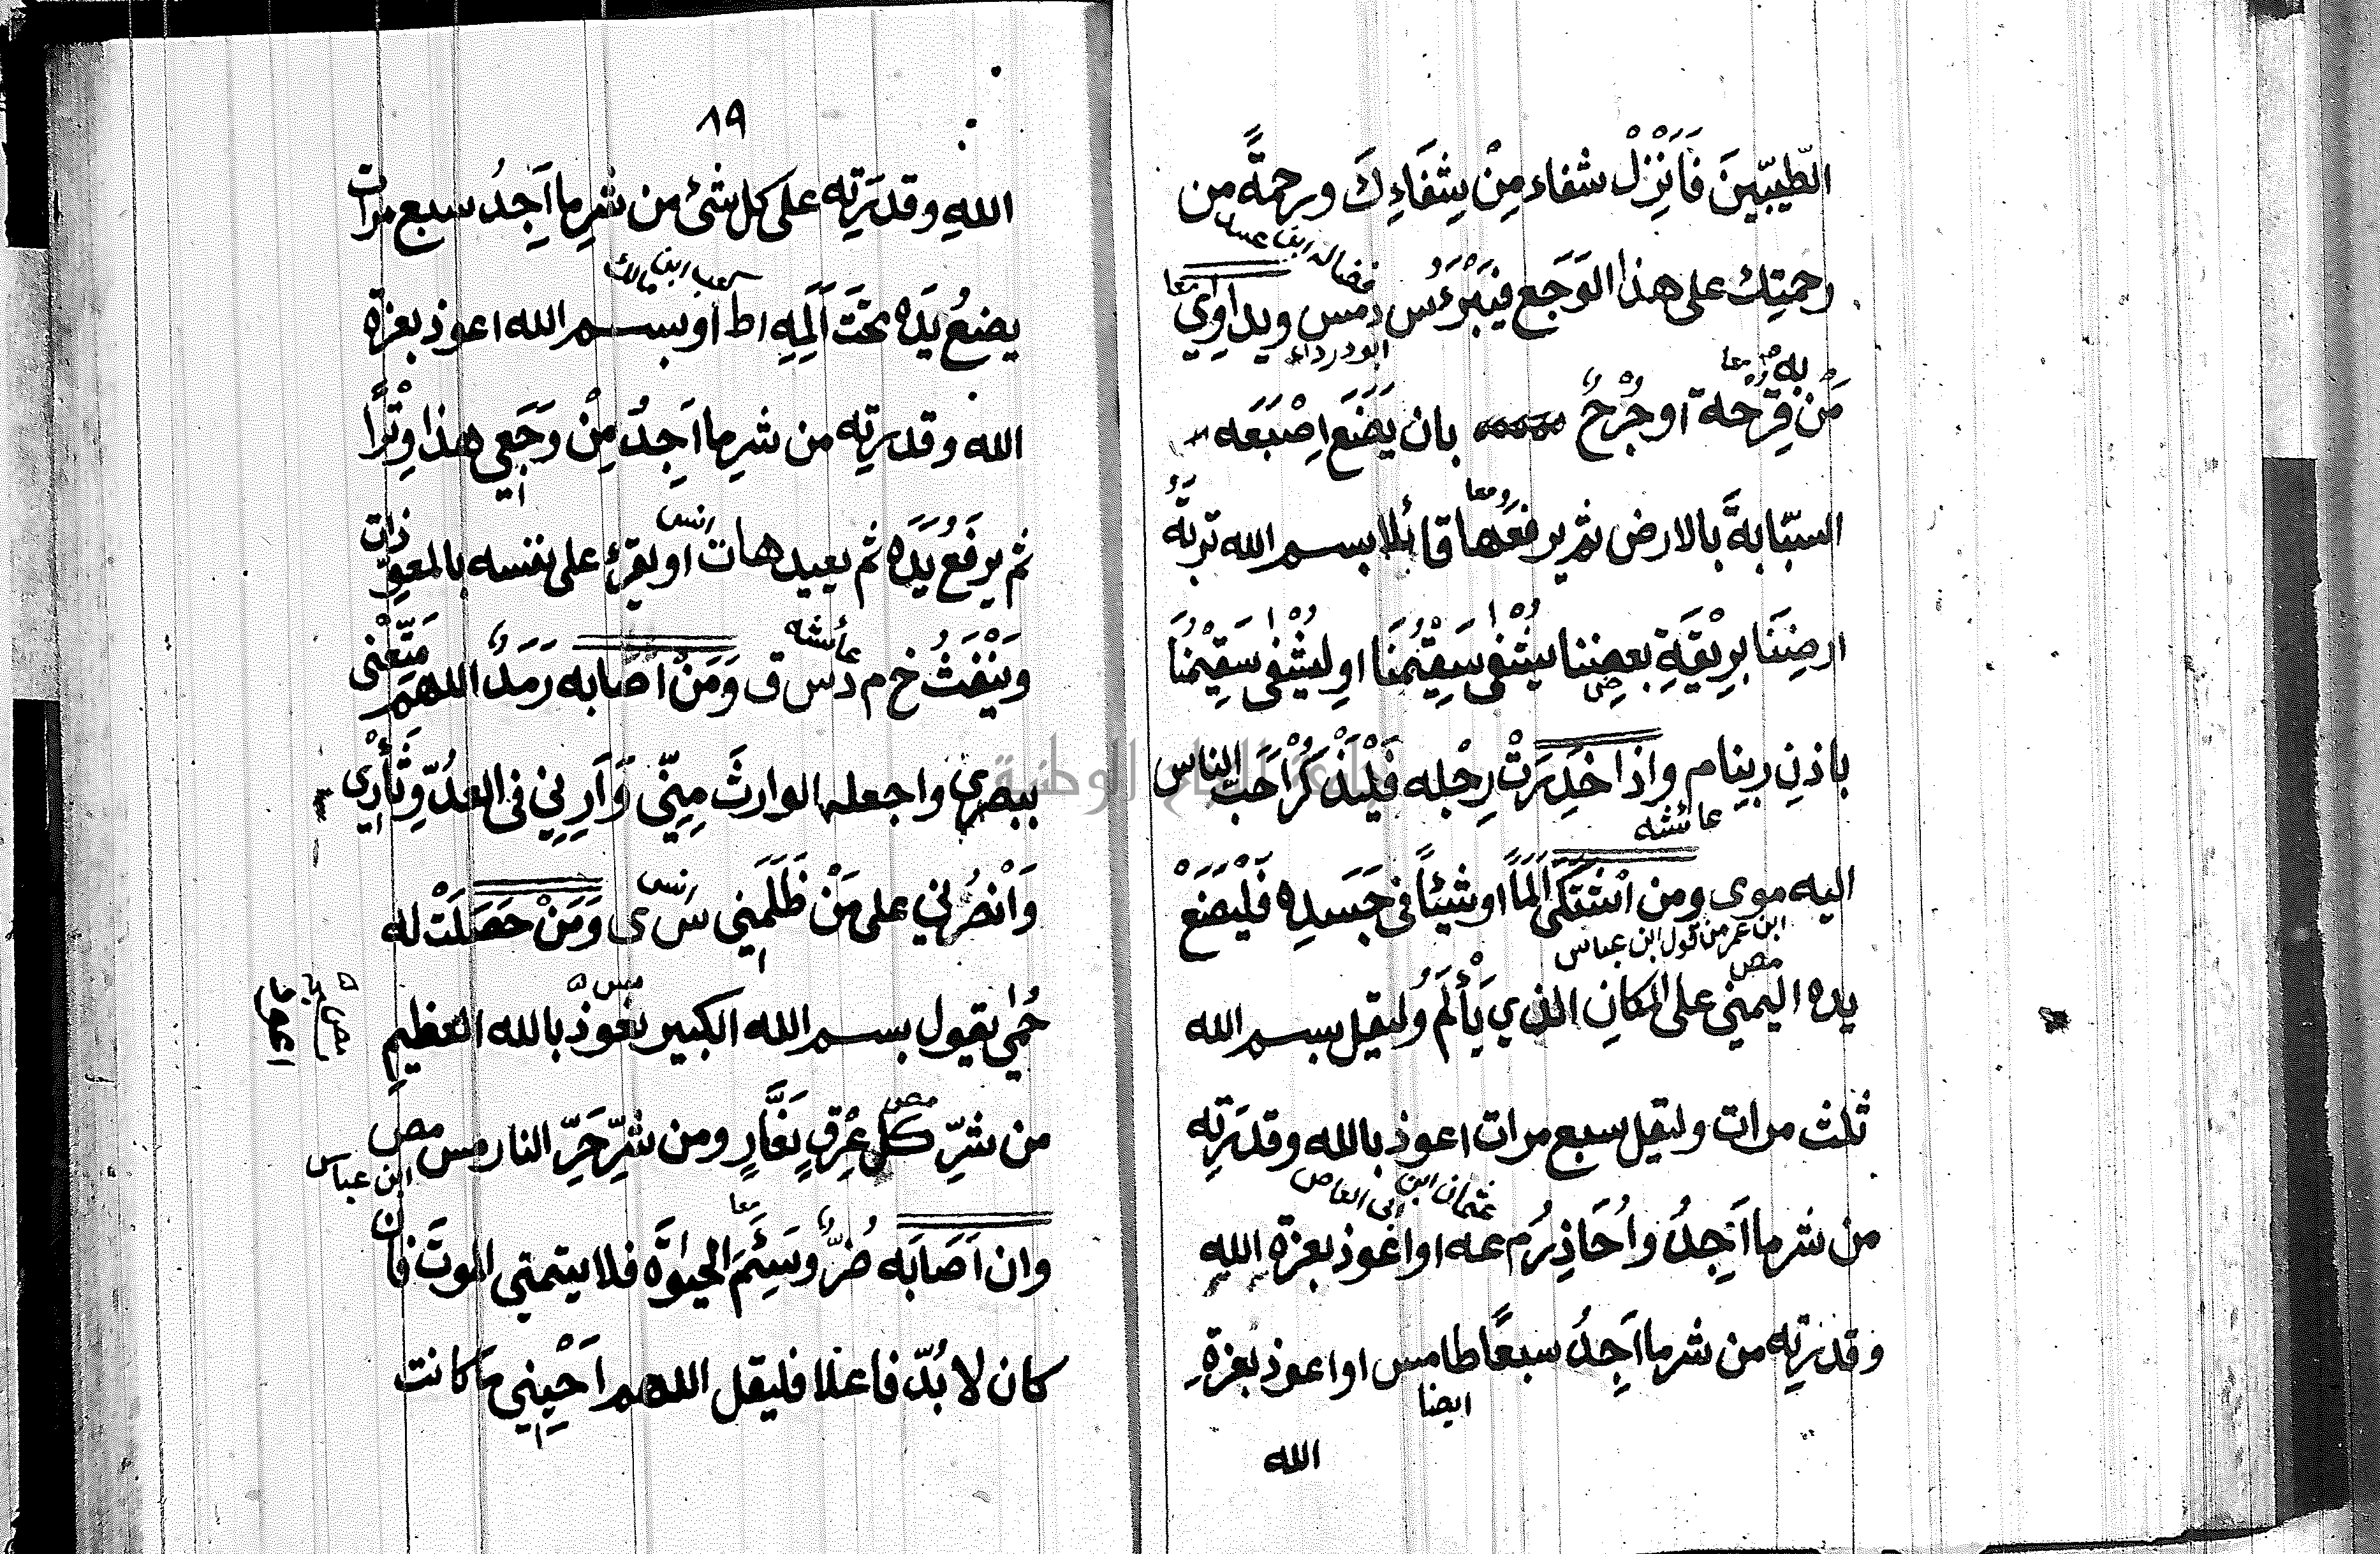 الطَّيِّبِينَ فَأَنْزِلْ شفاء مِنْ شِفَاءِكَ ورحمةً من
فضاله ابن عبيد
رحمتِك على هذا الوَجَعِ فَيَبْرَءُ س د مس ويداوِي معا
ابو درداء
به
مَنْ قرحة او جُرْحٌ بان يَضَعَ اِصْبَعَه
السبّابةَ بالارض ثم يرفعها قائلا بسم الله تربةُ
ارضِنَا بِرِيْقَةِ بعضِنا يُشْفٰى سَقِيْمُنَا او لِيُشْفٰى سَقِيْمُنَا
باذنِ ربِنا م واذا خَدِرَتْ رِجْله فَلْيَذْكُرْ اَحَبَّ الناس
عائشه
اليه موى ومن اشْتَكَى اَلَمًا او شيئًا فى جَسَدِه فَلْيَضَعْ
ابن عمر من قول ابن عباس
يده اليمنى على المكانِ الذي يَأْلَمُ وليقل بسم الله
ثلث مرات وليقل سبع مرات اعوذ بالله وقدرتِه
عثمان ابن ابى العاص
من شر ما اَجِدُ واُحَاذِرُ م عه او اعوذ بعزة اللهِ
وقدرتِه من شر ما اَجِدُ سبعًا طا مس او اعوذ بعزةِ
ايضا
الله
٨٩
اللهِ وقدرَتِه على كل شئ من شرِ ما اَجِدُ سبع مرات
كعب ابن مالك
يضعُ يَدَه تحْتَ اَلَمِهِ اط او بسم الله اعوذ بعزة
الله وقدرتِه من شرِ ما اَجِدُ مِنْ وَجَعِي هذا وِتْرًا
انس
ثم يرفَعُ يَدَه ثم يعيدها ت او يقرئ على نفسه بالمعوِّذات
عائشه
ويَنْفَثُ خ م د س ق وَمَنْ اَصَابه رَمَدٌ اللهم مَتِّعْنى
ببصرِي واجعله الوارثَ مِنِّى وَاَرِنِي فى العدُوِّ ثَأْرِى
انس
وَانْصُرْنِي على مَنْ ظَلَمَنِي س ى وَمَنْ حَصَلَتْ له
حُمّٰي يقول بسم الله الكبير نعوذ بالله العظيمِ
اعوذ
من شرِّ كلِ عِرْقٍ نَعَّارٍ ومن شرِّ حَرِّ النار مس مص
ابن عباس
وان اَصَابَه ضُرٌّ وسَئِمَ الحيٰوةَ فلا يتمنى الموتَ فان
كان لا بُدَّ فاعلا فليقل اللهم اَحْيِنِي ما كانت